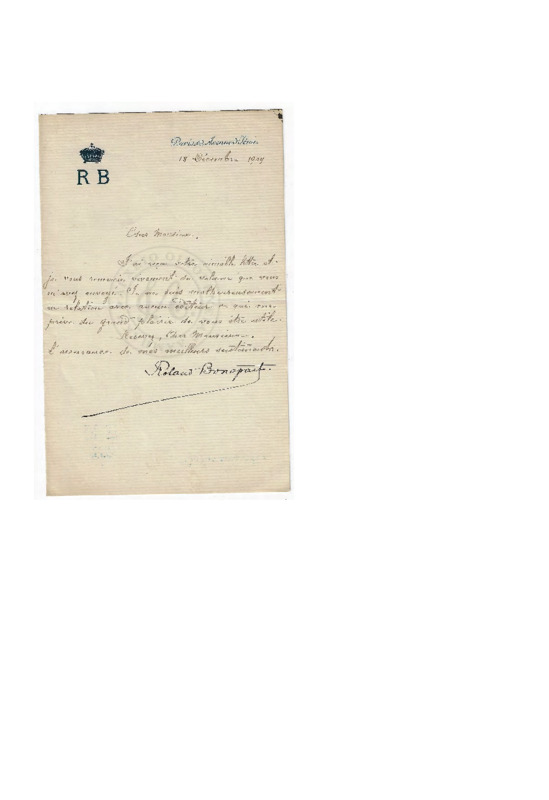 R B
Paris, Avenue d'Iéna
18 Décembre 1909
Cher Monsieur.
J'ai reçu votre aimable lettre et
je vous remercie vivement du volume que vous
m'avez envoyé. Je ne suis malheureusement
en relation avec aucun éditeur ce qui me
prive du grand plaisir de vous être utile.
Recevez, Cher Monsieur.
l'assurance de mes meilleurs sentiments.
Roland Bonaparte.